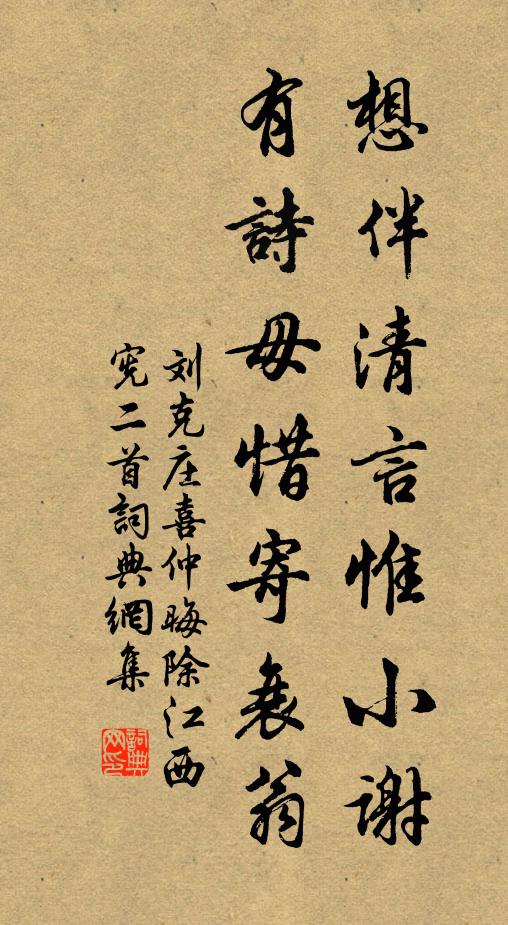 想伴清言惟小谢
有詩毋惜寄衰翁
刘克庄喜仲晦除江西
宪二首詞典網集
詞典